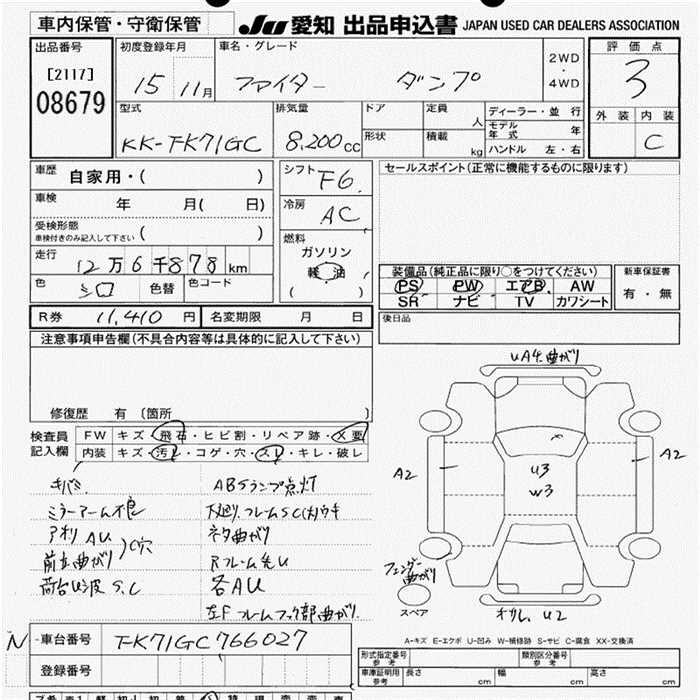 車内保管・守衛保管
JU 愛知 出品申込書 JAPAN USED CAR DEALERS ASSOCIATION
出品番号
[2117]
08679
初度登録年月
15 11月
車名・グレード
ファイター ダンプ
2WD
・
4WD
評価点
3
外装 内装
C
型式
KK-FK71GC
排気量
8,200cc
ドア
形状
定員 人
積載 kg
ディーラー・並行
モデル年式 年
ハンドル 左・右
車歴 自家用・( )
車検 年 月( 日)
受検形態
車検付きのみ記入して下さい ( )
走行 12万6千878km
色 シロ 色替 色コード
シフト F6
冷房 AC
燃料
ガソリン
軽油
( )
セールスポイント(正常に機能するものに限ります)
装備品(純正品に限り○をつけてください)
PS PW エアB AW
SR ナビ TV カワシート
新車保証書
有・無
R券 11,410円 名変期限 月 日
後日品
注意事項申告欄(不具合内容等は具体的に記入して下さい)
修復歴 有 (箇所 )
検査員
記入欄
FW キズ・飛石・ヒビ割・リペア跡・X要
内装 キズ・汚れ・コゲ・穴・スレ・キレ・破レ
キバミ
ミラーアーム不良
アオリ AU
前立曲がり
)C穴
荷台U波 S.C
ABSランプ点灯
下廻り.フレームSC(大)ウキ
ネタ曲がり
Rフレーム先U
各AU
左Fフレームフック部曲がり.
UA4.曲がり
A2
U3
W3
A2
フェンダー曲がり
スペア
オサレ. U2
A-キズ E-エクボ U-凹み W-補修跡 S-サビ C-腐食 XX-交換済
N
車台番号 FK71GC766027
登録番号
型式指定番号
参考
類別区分番号
参考
車庫証明用
参考
長さ cm 幅 cm 高さ cm